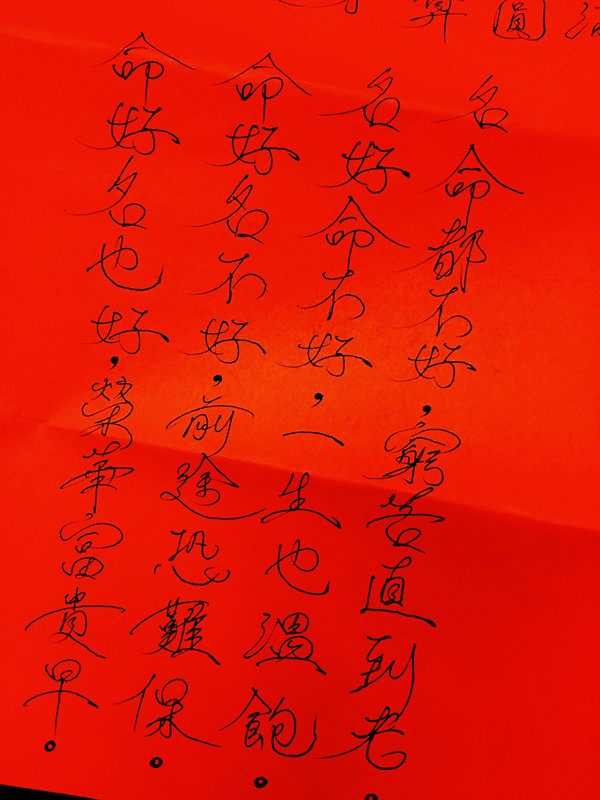 圓
命好名也好，榮華富貴早。
命好名不好，前途恐難保。
名好命不好，一生也溫飽。
名命都不好，窮苦直到老。